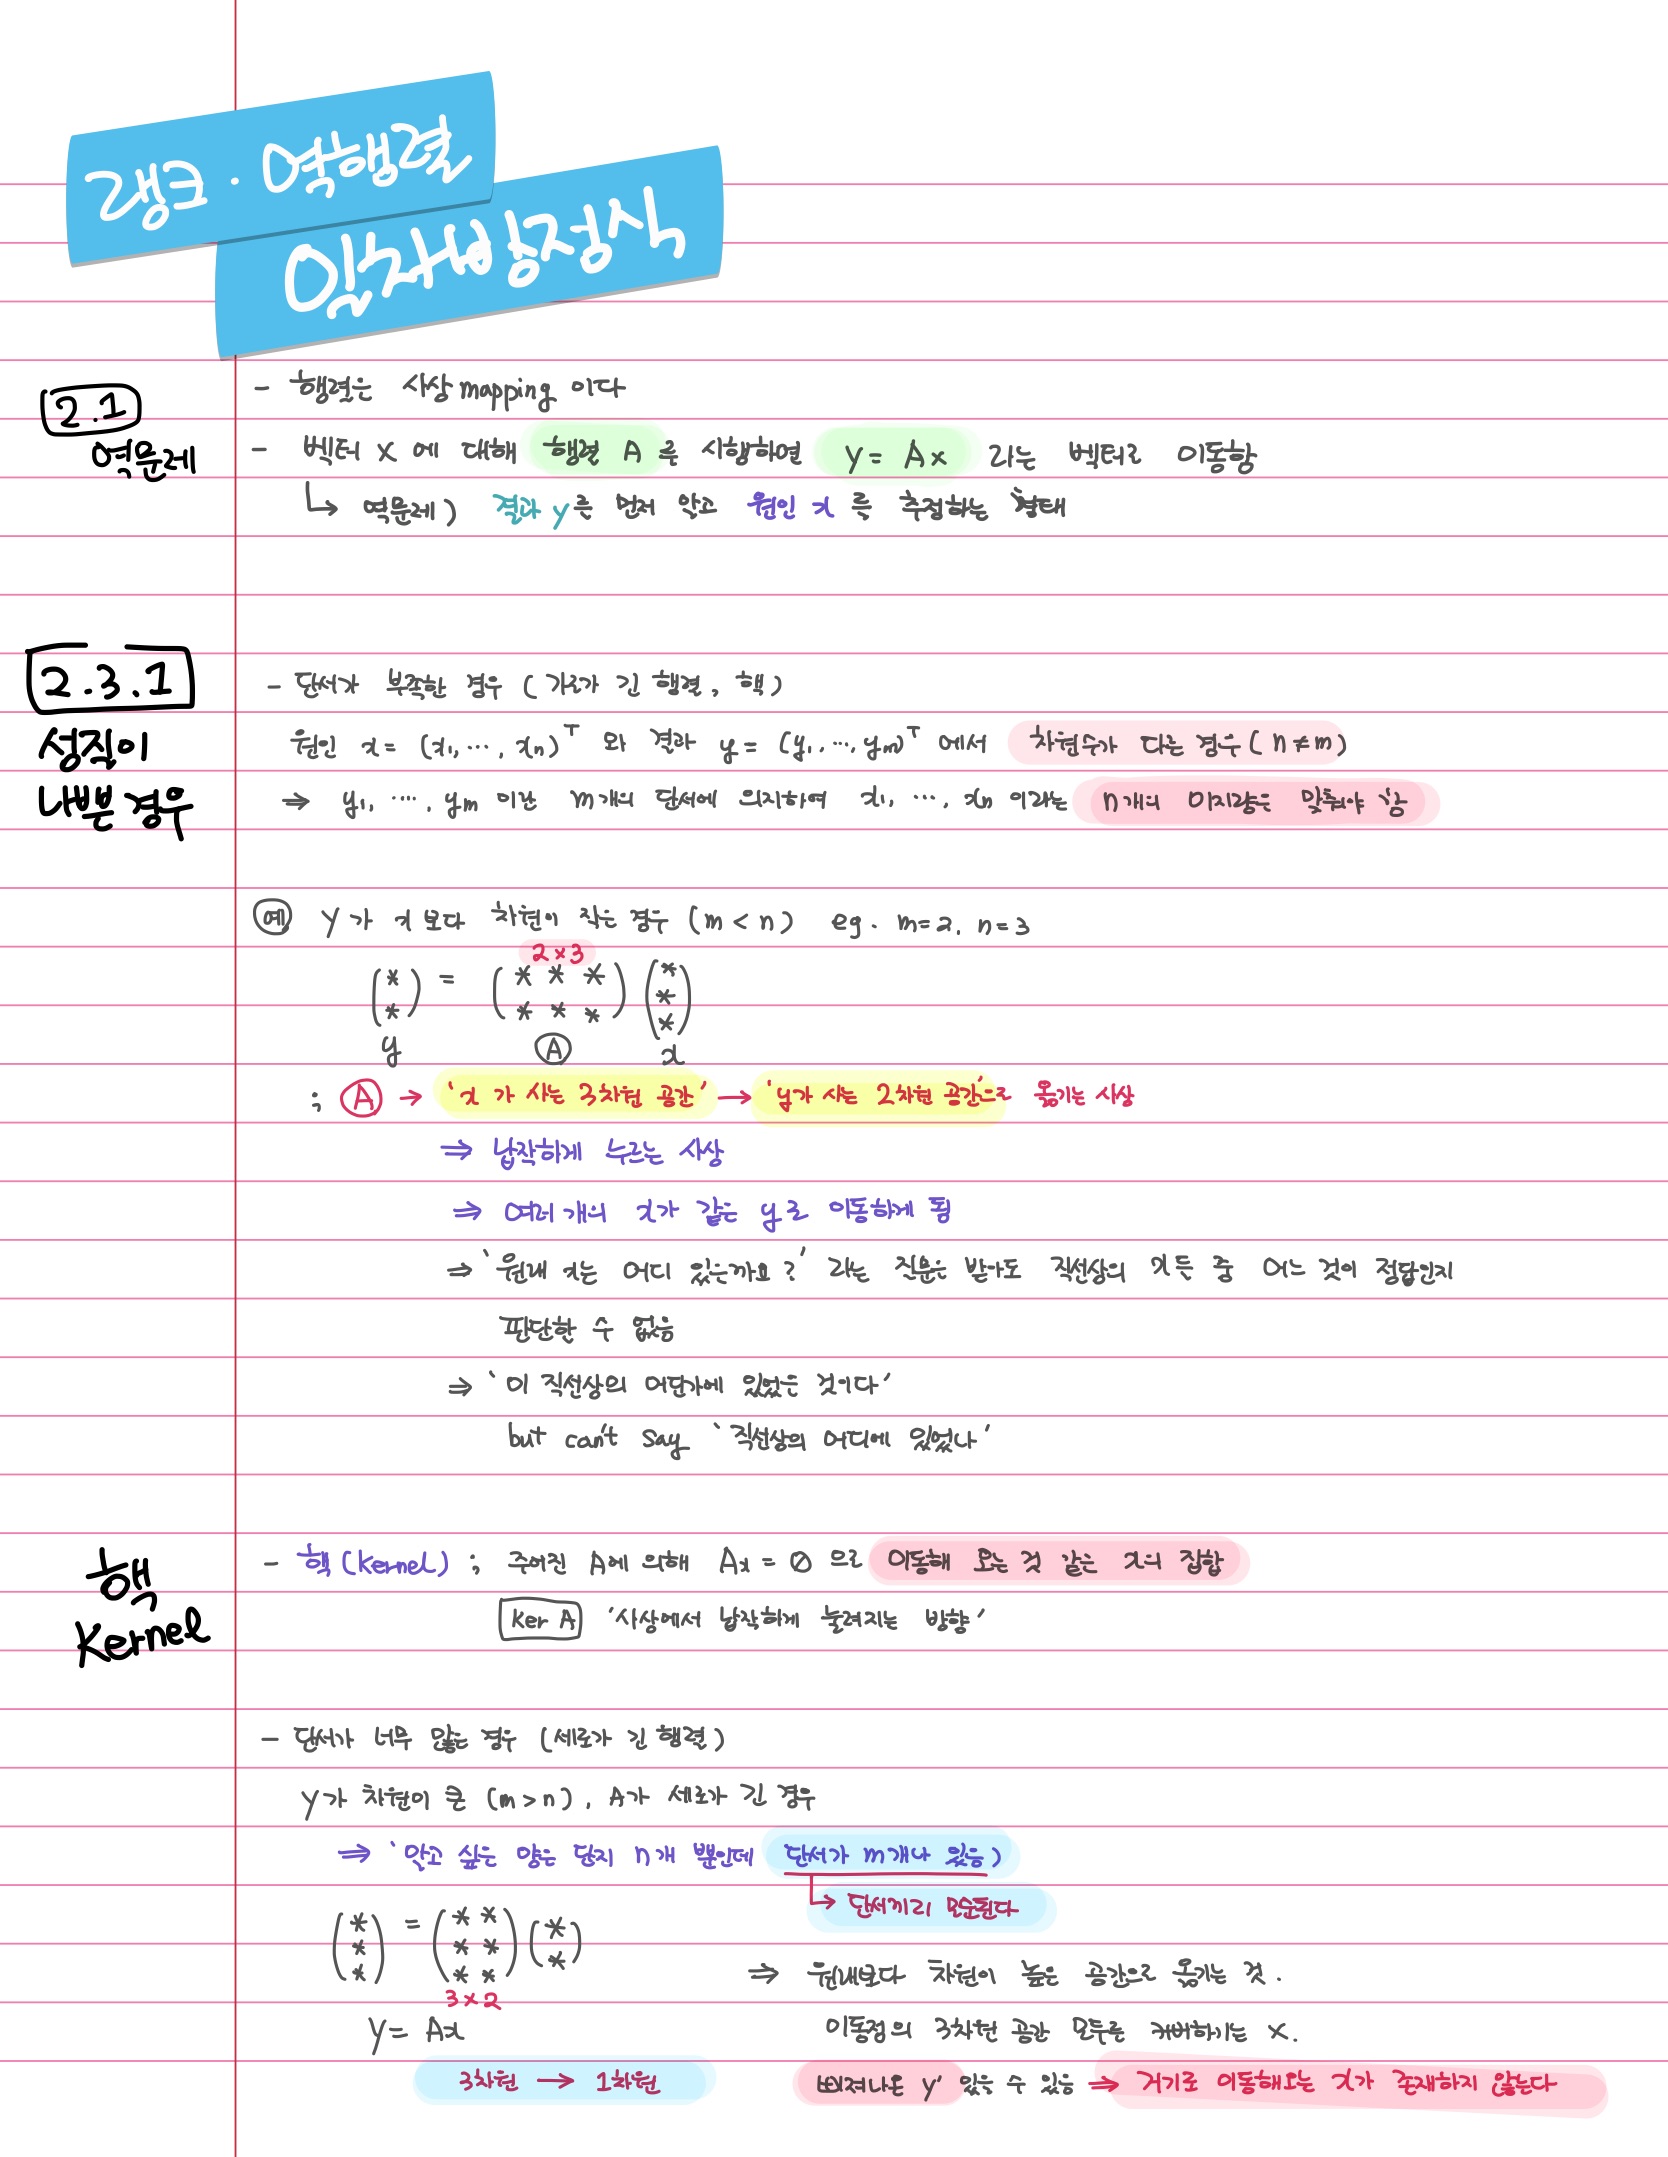 랭크 · 역행렬
일차방정식
2.1
역문제
- 행렬은 사상 mapping 이다
- 벡터 x 에 대해 행렬 A 를 시행하면 y = Ax 라는 벡터로 이동함
↳ 역문제) 결과 y를 먼저 알고 원인 x 를 추정하는 형태
2.3.1
성질이
나쁜 경우
- 단서가 부족한 경우 (가로가 긴 행렬, 핵)
원인 x = (x₁, ⋯, xn)ᵀ 와 결과 y = (y₁, ⋯, ym)ᵀ 에서 차원수가 다른 경우 (n ≠ m)
⇒ y₁, ⋯, ym 이란 m개의 단서에 의지하여 x₁, ⋯, xn 이라는 n개의 미지량을 맞춰야 함
예 y가 x보다 차원이 작은 경우 (m < n) eg. m=2, n=3
2×3
(* *) = (* * * * * *) (* * *)
y A x
; A → 'x 가 사는 3차원 공간' → 'y가 사는 2차원 공간'으로 옮기는 사상
⇒ 납작하게 누르는 사상
⇒ 여러 개의 x가 같은 y로 이동하게 됨
⇒ '원래 x는 어디 있을까요?' 라는 질문을 받아도 직선상의 x들 중 어느 것이 정답인지
판단할 수 없음
⇒ '이 직선상의 어딘가에 있었을 것이다'
but can't say '직선상의 어디에 있었나'
핵
Kernel
- 핵(Kernel) ; 주어진 A에 의해 Ax = 0 으로 이동해 오는 것 같은 x의 집합
Ker A '사상에서 납작하게 눌려지는 방향'
- 단서가 너무 많은 경우 (세로가 긴 행렬)
y가 차원이 큰 (m > n), A가 세로가 긴 경우
⇒ '알고 싶은 양은 단지 n개 뿐인데 단서가 m개나 있음)
↳ 단서끼리 모순된다
(* * *) = (* * * * * *) (* *)
3×2
⇒ 원래보다 차원이 높은 공간으로 옮기는 것.
y = Ax
이동점의 3차원 공간 모두를 커버하기는 X.
3차원 → 1차원
삐져나온 y' 있을 수 있음 ⇒ 거기로 이동해오는 x가 존재하지 않는다